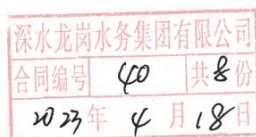 深水龙岗水务集团有限公司
合同编号 40 共8份
2023年4月18日